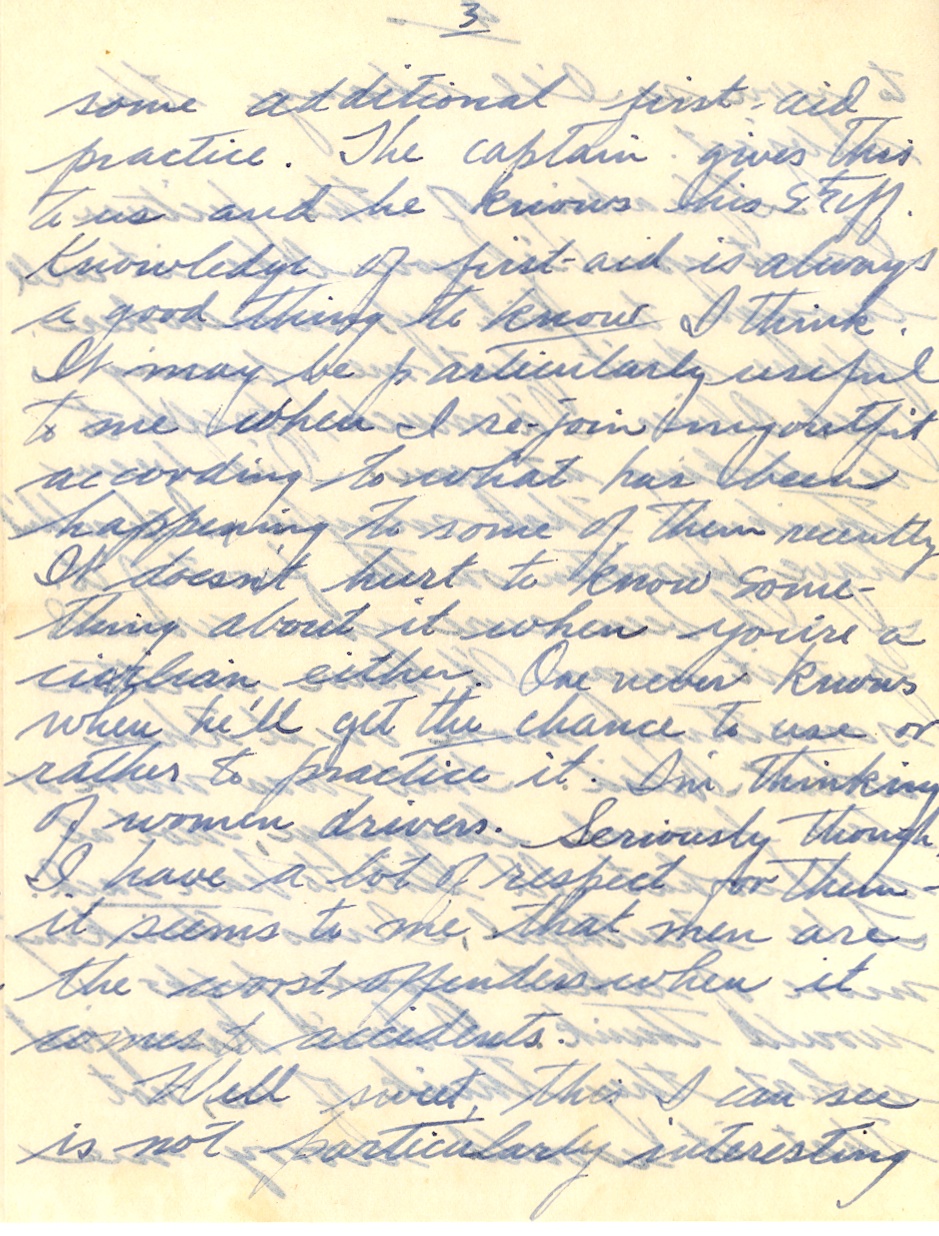 3
some additional first-aid
practice. The captain gives this
to us and he knows his stuff.
Knowledge of first-aid is always
a good thing to know I think.
It may be particularly useful
to me when I re-join my outfit
according to what has been
happening to some of them recently
It doesn't hurt to know some-
thing about it when you're a
civilian either. One never knows
when he'll get the chance to use or
rather to practice it. I'm thinking
of women drivers. Seriously though
I have a lot of respect for them-
it seems to me, that men are
the worst offenders when it
comes to accidents.
Well sweet, this I can see
is not particularly interesting